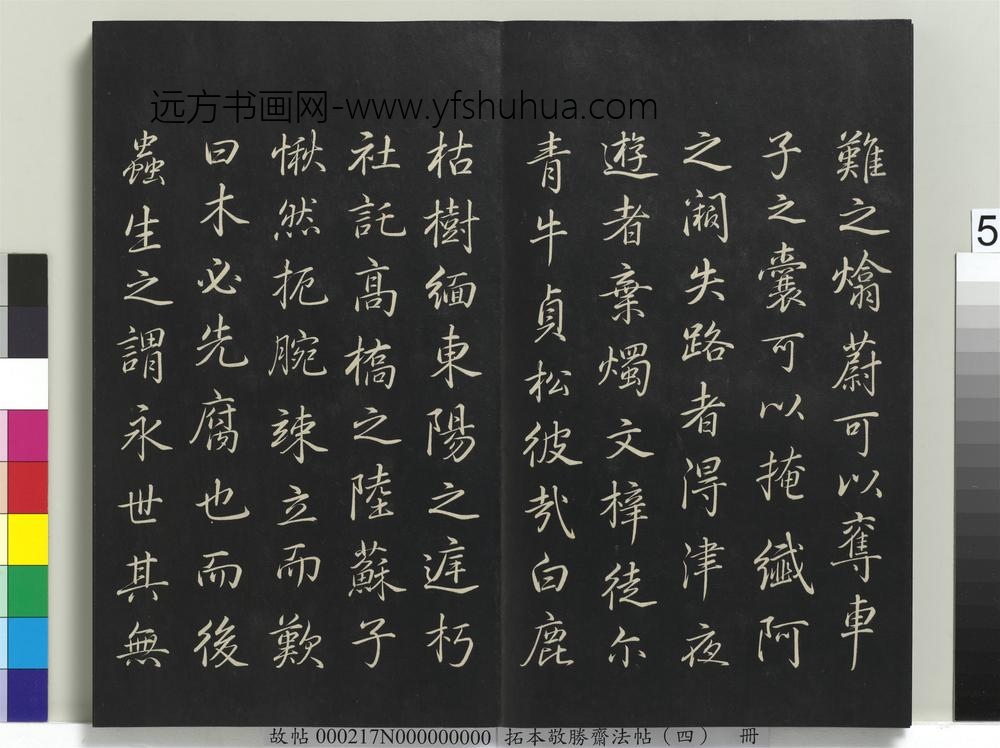 远方书画网-www.yfshuhua.com
難之爚蔚可以奪車
子之囊可以掩纖阿
之濶失路者得津夜
遊者棄燭文梓徒尓
青牛貞松彼哉白鹿
枯樹緬東陽之庭朽
社託髙橋之陸蘇子
愀然扼腕竦立而歎
曰木必先腐也而後
蟲生之謂永世其無
故帖000217N000000000 拓本敬勝齋法帖（四） 冊
5